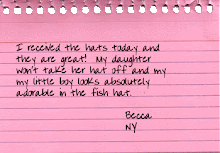 I received the hats today and
they are great! My daughter
won't take her hat off and my
my little boy looks absolutely
adorable in the fish hat.
Becca
NY